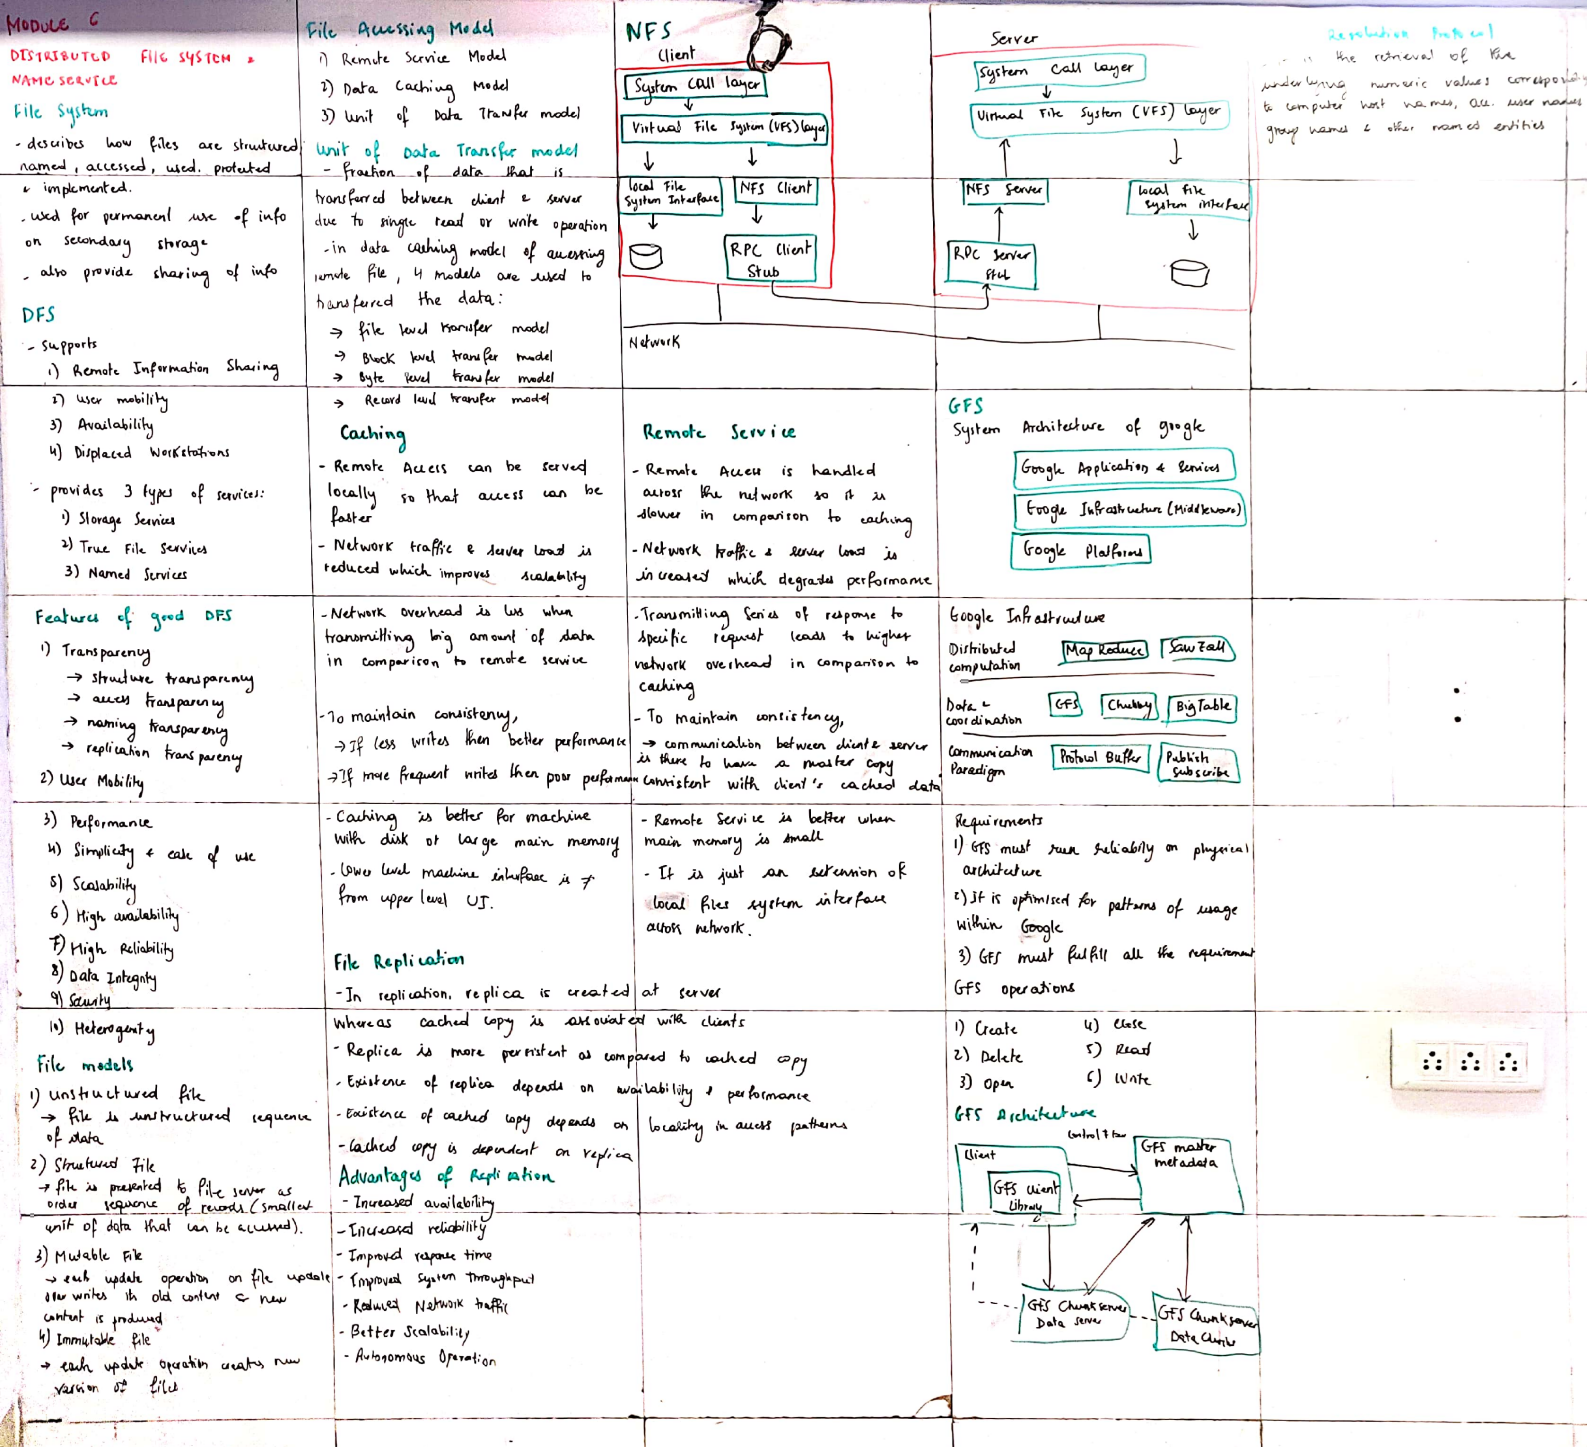 MODULE 6
DISTRIBUTED FILE SYSTEM &
NAME SERVICE
File System
- describes how files are structured,
named, accessed, used, protected
& implemented.
- used for permanent use of info
on secondary storage
- also provide sharing of info
DFS
- supports
1) Remote Information Sharing
2) User mobility
3) Availability
4) Displaced Workstations
- provides 3 types of services:
1) Storage Services
2) True File Services
3) Named Services
Features of good DFS
1) Transparency
→ structure transparency
→ access transparency
→ naming transparency
→ replication transparency
2) User Mobility
3) Performance
4) Simplicity & ease of use
5) Scalability
6) High availability
7) High Reliability
8) Data Integrity
9) Security
10) Heterogenity
File models
1) Unstructured file
→ file is unstructured sequence
of data
2) Structured File
→ file is presented to file server as
order sequence of records (smallest
unit of data that can be accessed).
3) Mutable File
→ each update operation on file update
over writes its old content & new
content is produced
4) Immutable file
→ each update operation creates new
version of files
File Accessing Model
1) Remote Service Model
2) Data Caching Model
3) Unit of Data Transfer model
Unit of Data Transfer model
- fraction of data that is
transferred between client & server
due to single read or write operation
- in data caching model of accessing
remote file, 4 models are used to
transferred the data:
→ file level transfer model
→ Block level transfer model
→ Byte level transfer model
→ Record level transfer model
Caching
- Remote Access can be served
locally so that access can be
faster
- Network traffic & server load is
reduced which improves scalability
- Network overhead is less when
transmitting big amount of data
in comparison to remote service
- To maintain consistency,
→ If less writes then better performance
→ If more frequent writes then poor performance
- Caching is better for machine
with disk or large main memory
- lower level machine interface is ≠
from upper level UI.
File Replication
- In replication, replica is created at server
whereas cached copy is associated with clients
- Replica is more persistent as compared to cached copy
- Existence of replica depends on availability & performance
- Existence of cached copy depends on locality in access patterns
- Cached copy is dependent on replica
Advantages of Replication
- Increased availability
- Increased reliability
- Improved response time
- Improved System throughput
- Reduced Network traffic
- Better Scalability
- Autonomous Operation
NFS
Client
System Call layer
Virtual File System (VFS) layer
local File
System Interface
NFS Client
RPC Client
Stub
Network
Server
System Call layer
Virtual File System (VFS) layer
NFS Server
local File
System interface
RPC Server
Stub
Remote Service
- Remote Access is handled
across the network so it is
slower in comparison to caching
- Network traffic & server load is
increased which degrades performance
- Transmitting series of response to
specific request leads to higher
network overhead in comparison to
caching
- To maintain consistency,
→ communication between client & server
is there to have a master copy
consistent with client's cached data
- Remote Service is better when
main memory is small
- It is just an extension of
local files system interface
across network.
GFS
System Architecture of google
Google Application & Services
Google Infrastructure (Middleware)
Google Platforms
Google Infrastructure
Distributed
computation
Map Reduce
Saw Zall
Data &
coordination
GFS
Chubby
BigTable
Communication
Paradigm
Protocol Buffer
Publish
Subscribe
Requirements
1) GFS must run reliabily on physical
architecture
2) It is optimised for patterns of usage
within Google
3) GFS must fulfill all the requirement
GFS operations
1) Create
2) Delete
3) Open
4) Close
5) Read
6) Write
GFS Architecture
Control Flow
Client
GFS client
Library
GFS master
metadata
GFS Chunkserver
Data server
GFS Chunkserver
Data
Resolution Protocol
is the retrieval of the
underlying numeric values corresponding
to computer host names, acc. user names
group names & other named entities